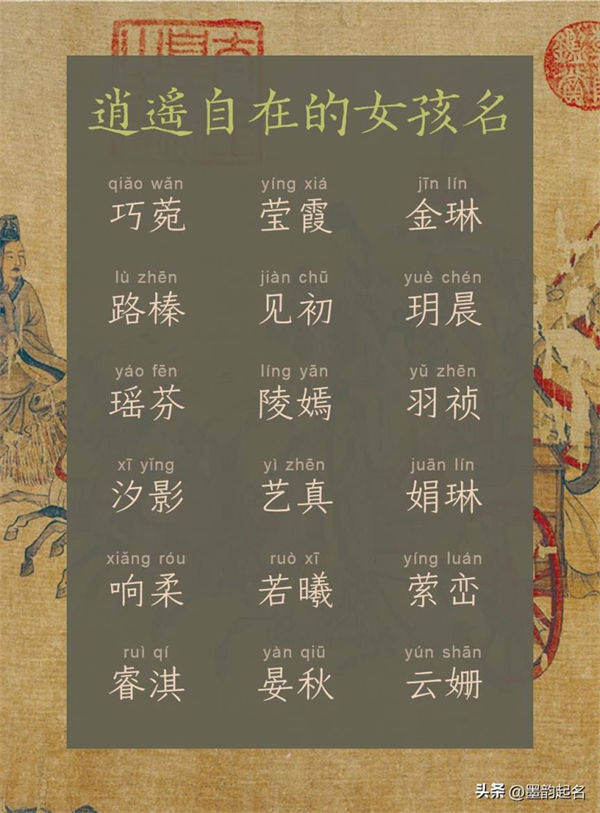 逍遥自在的女孩名
qiǎo wǎn yíng xiá jīn lín
巧菀 莹霞 金琳
lù zhēn jiàn chū yuè chén
路榛 见初 玥晨
yáo fēn líng yān yǔ zhēn
瑶芬 陵嫣 羽祯
xī yǐng yì zhēn juān lín
汐影 艺真 娟琳
xiǎng róu ruò xī yíng luán
响柔 若曦 萦峦
ruì qí yàn qiū yún shān
睿淇 晏秋 云姗
头条 @墨韵起名